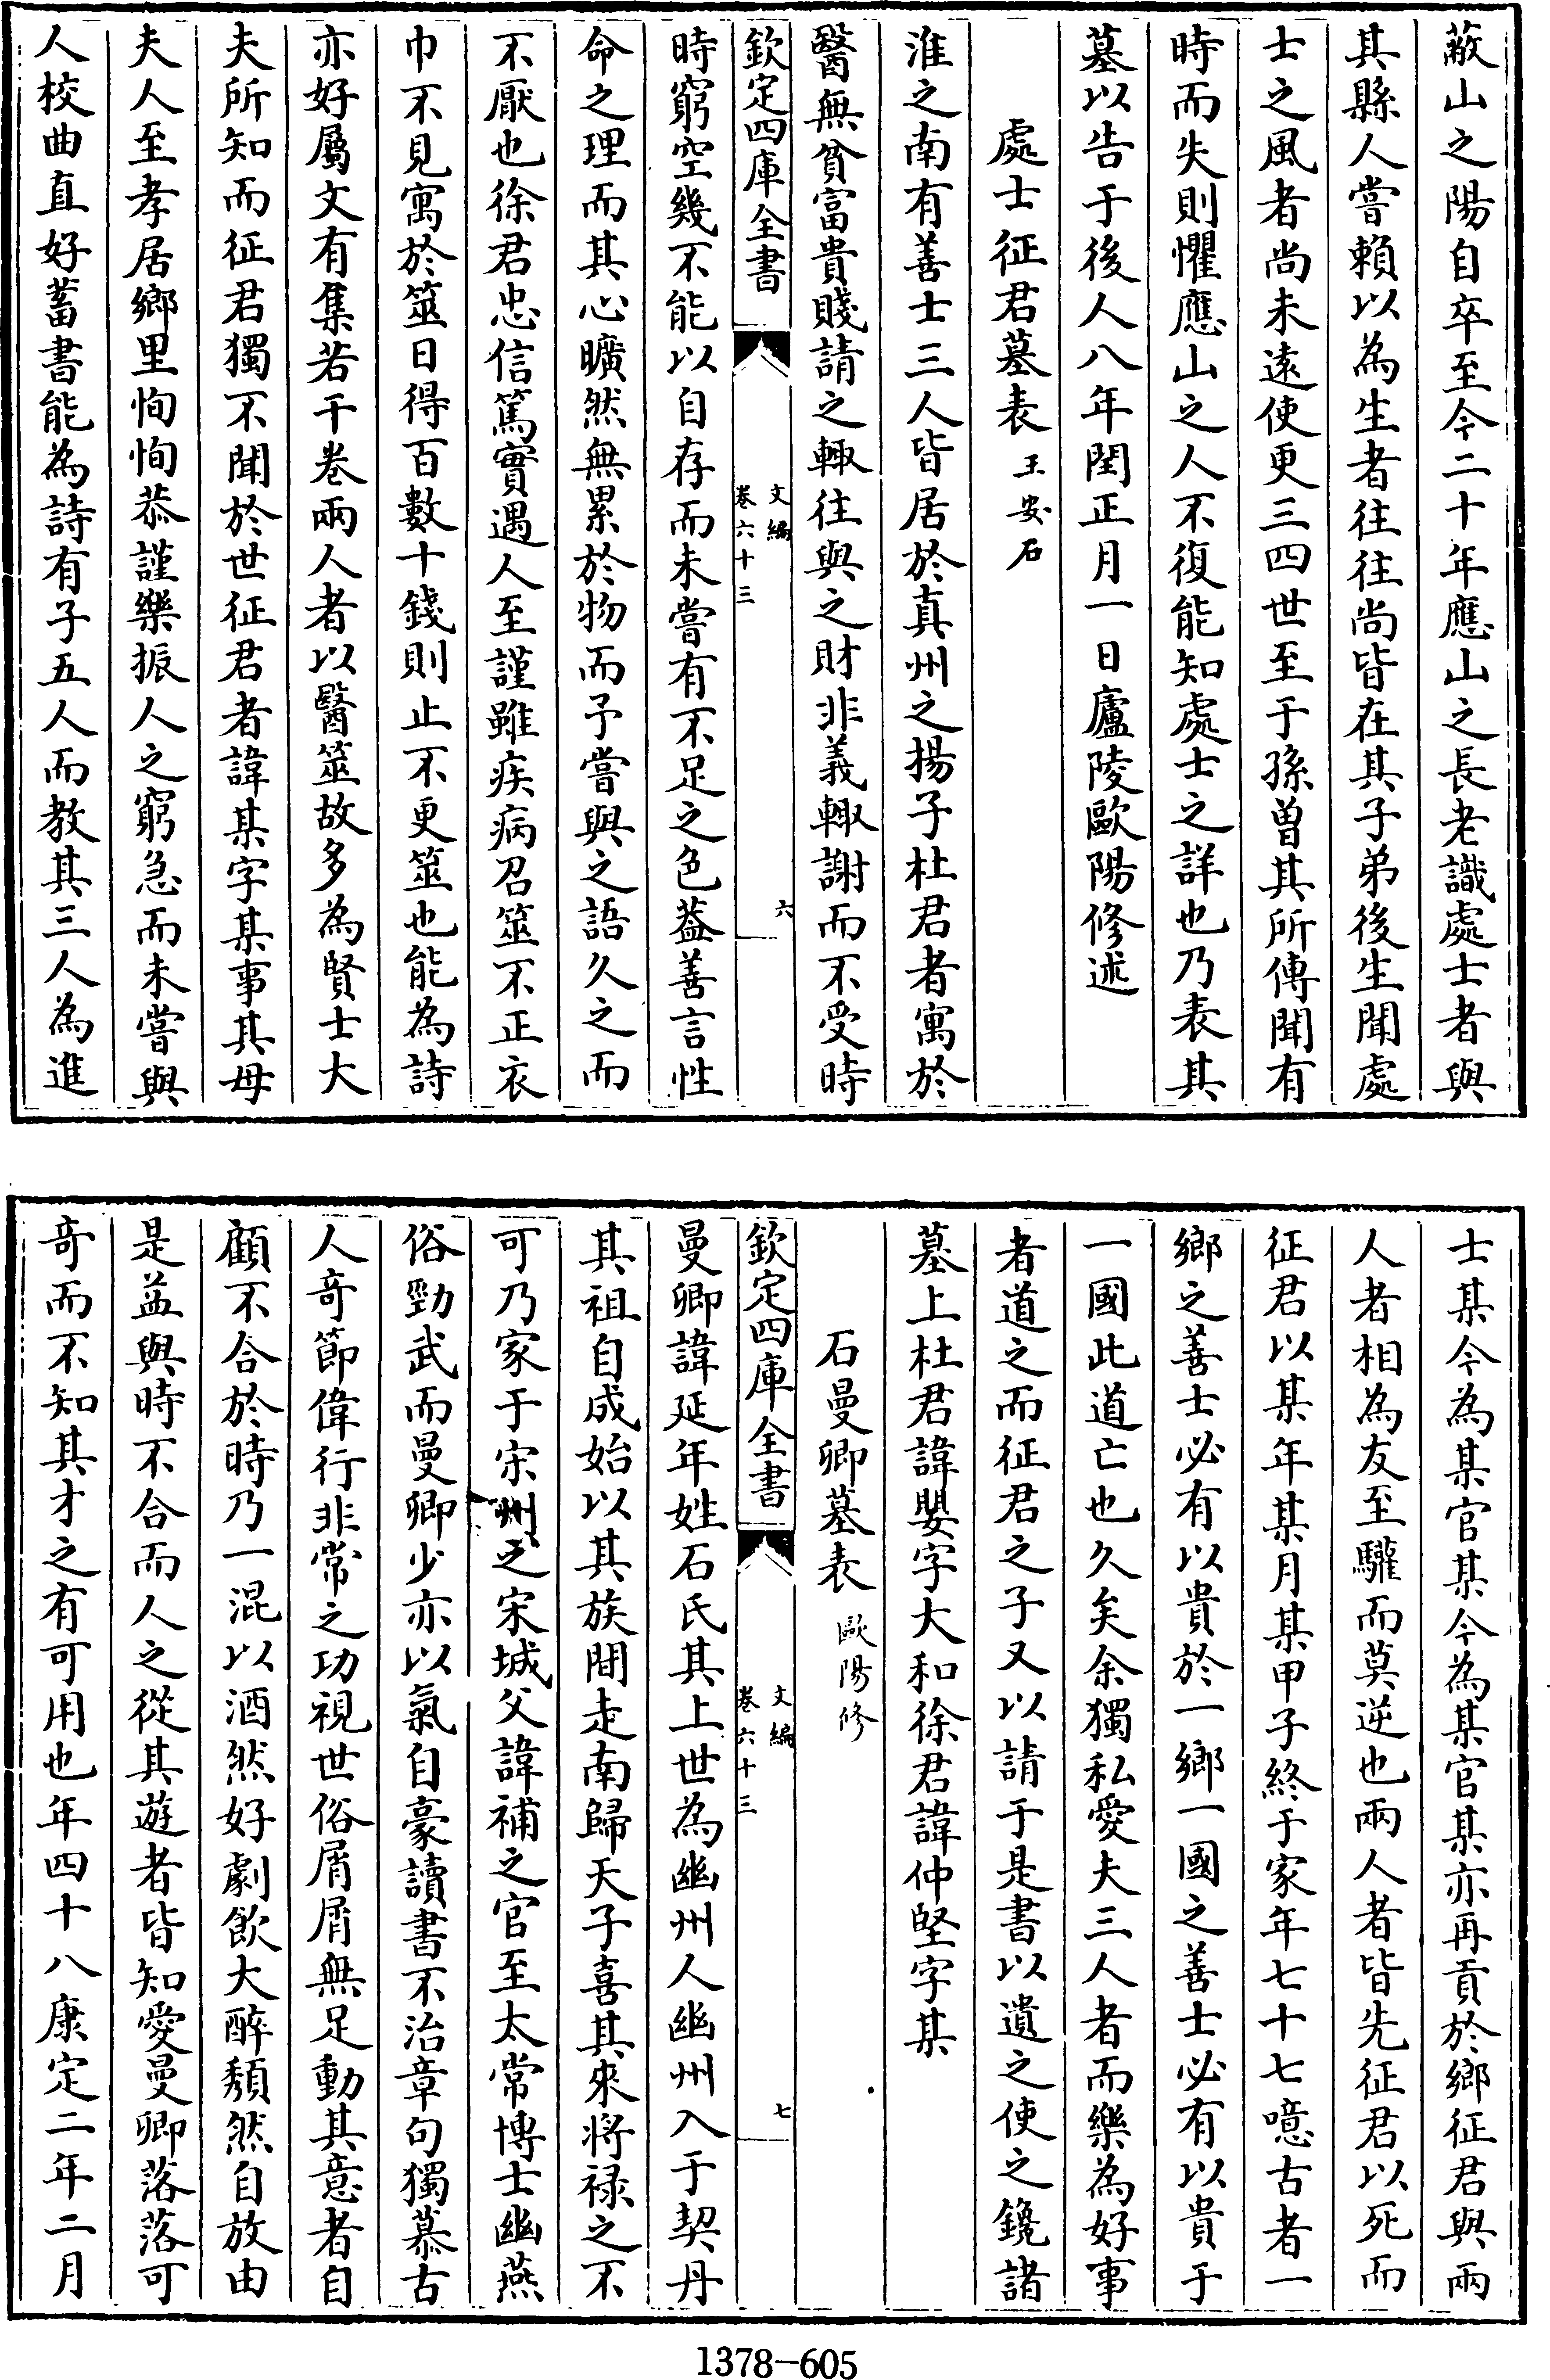 蔽山之陽自卒至今二十年應山之長老識處士者與
其縣人嘗賴以為生者往往尚皆在其子弟後生聞處
士之風者尚未遠使更三四世至于孫曽其所傳聞有
時而失則懼應山之人不復能知處士之詳也乃表其
墓以告于後人八年閏正月一日廬陵歐陽修述
處士征君墓表 王安石
淮之南有善士三人皆居於真州之揚子杜君者寓於
醫無貧富貴賤請之輙往與之財非義輙謝而不受時
欽定四庫全書 文編 卷六十三 六
時窮空幾不能以自存而未嘗有不足之色葢善言性
命之理而其心曠然無累於物而予嘗與之語久之而
不厭也徐君忠信篤實遇人至謹雖疾病召筮不正衣
巾不見寓於筮日得百數十錢則止不更筮也能為詩
亦好屬文有集若干卷兩人者以醫筮故多為賢士大
夫所知而征君獨不聞於世征君者諱某字某事其母
夫人至孝居鄉里恂恂恭謹樂振人之窮急而未嘗與
人校曲直好蓄書能為詩有子五人而教其三人為進
士某今為某官某今為某官某亦再貢於鄉征君與兩
人者相為友至驩而莫逆也兩人者皆先征君以死而
征君以某年某月某甲子終于家年七十七噫古者一
鄉之善士必有以貴於一鄉一國之善士必有以貴于
一國此道亡也久矣余獨私愛夫三人者而樂為好事
者道之而征君之子又以請于是書以遺之使之鑱諸
墓上杜君諱嬰字大和徐君諱仲堅字某
石曼卿墓表 歐陽修
欽定四庫全書 文編 卷六十三 七
曼卿諱延年姓石氏其上世為幽州人幽州入于契丹
其祖自成始以其族間走南歸天子喜其來將禄之不
可乃家于宋州之宋城父諱補之官至太常博士幽燕
俗勁武而曼卿少亦以氣自豪讀書不治章句獨慕古
人奇節偉行非常之功視世俗屑屑無足動其意者自
顧不合於時乃一混以酒然好劇飲大醉頽然自放由
是益與時不合而人之從其遊者皆知愛曼卿落落可
奇而不知其才之有可用也年四十八康定二年二月
1378-605